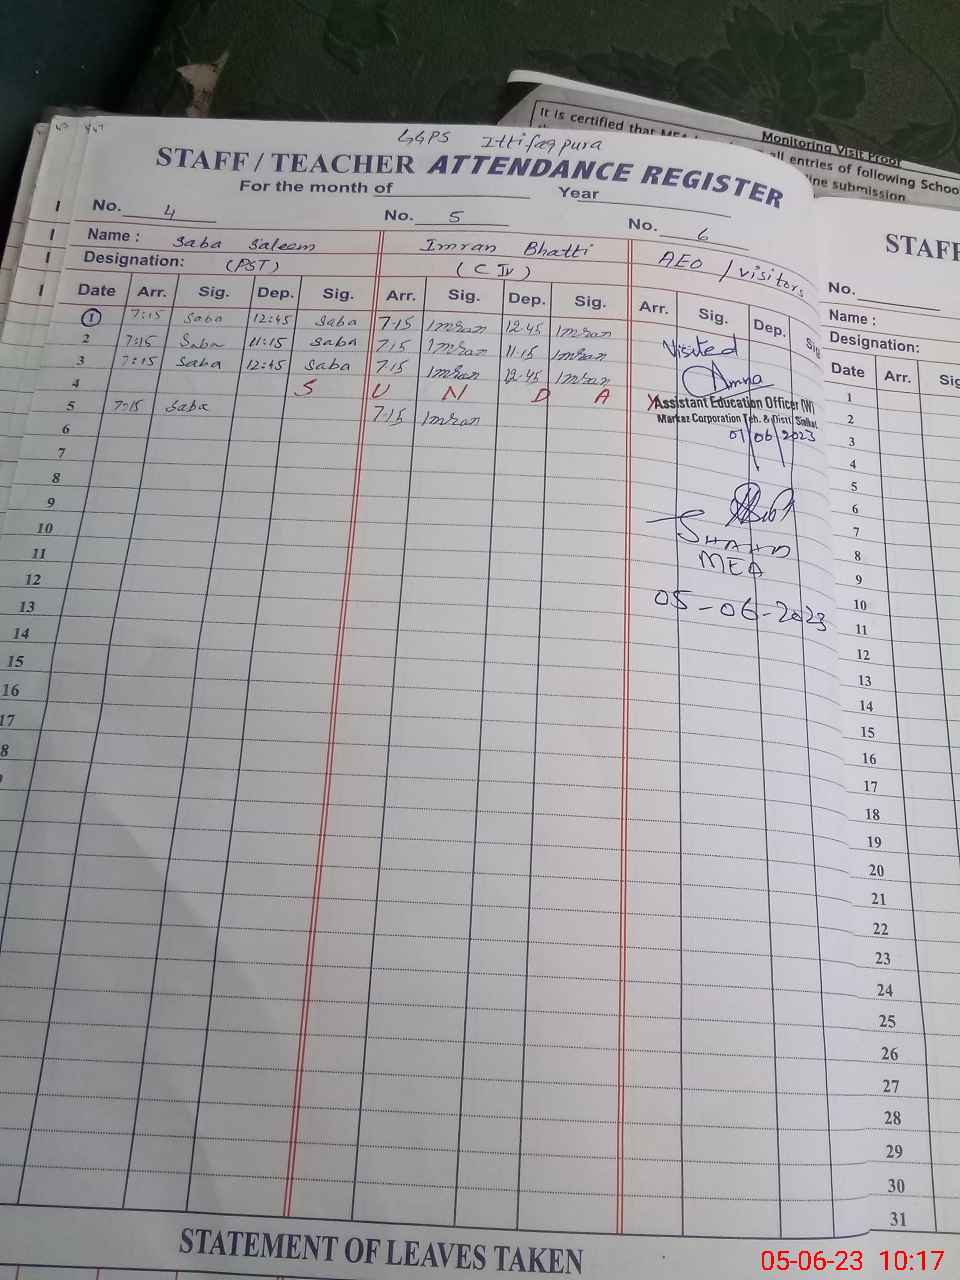 It is certified that MEA
Monitoring Visit Proof
all entries of following School
line submission
GGPS Ittifaqpura
STAFF / TEACHER ATTENDANCE REGISTER
For the month of Year
No. 4 No. 5 No. 6
Name : Saba Saleem Imran Bhatti AEO / visitors
Designation: (PST) (C IV)
Date Arr. Sig. Dep. Sig. Arr. Sig. Dep. Sig. Arr. Sig. Dep. Sig
1 7:15 Saba 12:45 Saba 7:15 Imran 12:45 Imran
2 7:15 Saba 11:15 Saba 7:15 Imran 11:15 Imran
3 7:15 Saba 12:45 Saba 7:15 Imran 12:45 Imran
4 S U N D A
5 7:15 Saba 7:15 Imran
6
7
8
9
10
11
12
13
14
15
16
17
8
Visited
Amna
Assistant Education Officer (W)
Markaz Corporation Teh. & Distt. Sialkot
01/06/2023
SHAHD
MEA
05-06-2023
STAFF
No.
Name :
Designation:
Date Arr. Sig
1
2
3
4
5
6
7
8
9
10
11
12
13
14
15
16
17
18
19
20
21
22
23
24
25
26
27
28
29
30
31
STATEMENT OF LEAVES TAKEN
05-06-23 10:17